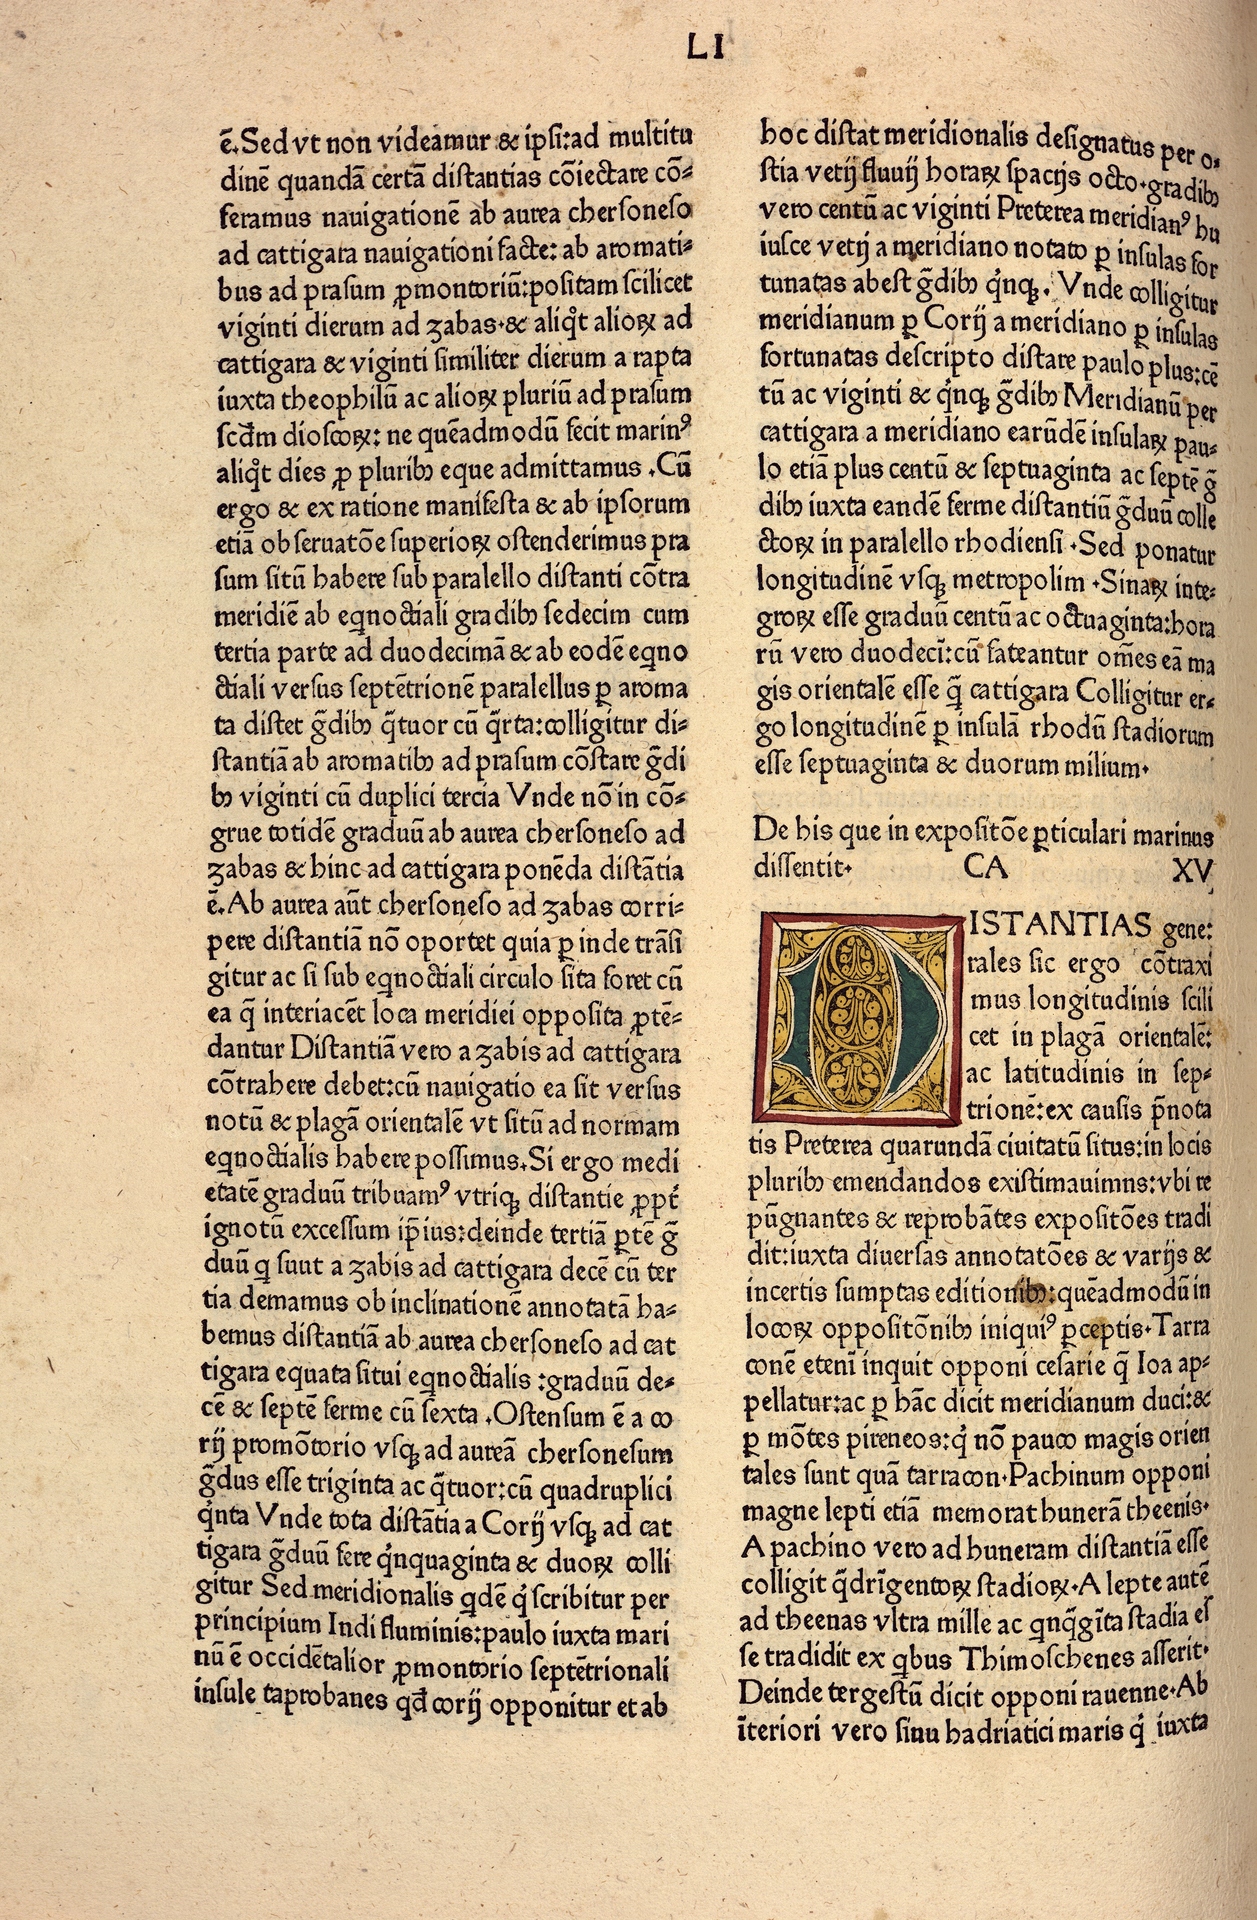 LI
ē.Sed vt non videamur & ipsi:ad multitu
dinē quandā certā distantias cōiectare cō⸗
feramus nauigationē ab aurea chersoneso
ad cattigara nauigationi facte: ab aromati⸗
bus ad prasum ꝓmontoriū:positam scilicet
viginti dierum ad zabas.& aliqͥt alioꝝ ad
cattigara & viginti similiter dierum a rapta
iuxta theophilū ac alioꝝ pluriū ad prasum
scd̄m dioscoꝝ: ne quēadmodū fecit marinꝰ
aliqͥt dies ꝓ pluribꝫ eque admittamus .Cū
ergo & ex ratione manifesta & ab ipsorum
etiā obseruatōe superioꝝ ostenderimus pra
sum sitū habere sub paralello distanti cōtra
meridiē ab eqnoctiali gradibꝫ sedecim cum
tertia parte ad duodecimā & ab eodē eqno
ctiali versus septētrionē paralellus ꝑ aroma
ta distet ḡdibꝫ q̄tuor cū q̄rta:colligitur di⸗
stantiā ab aromatibꝫ ad prasum cōstare ḡdi
bꝫ viginti cū duplici tercia Vnde nō in cō⸗
grue totidē graduū ab aurea chersoneso ad
zabas & hinc ad cattigara ponēda distātia
ē.Ab aurea aūt chersoneso ad zabas corri⸗
pere distantiā nō oportet quia ꝑ inde trāsi
gitur ac si sub eqnoctiali circulo sita foret cū
ea q̄ interiacēt loca meridiei opposita ꝓtē⸗
dantur Distantiā vero a zabis ad cattigara
cōtrahere debet:cū nauigatio ea sit versus
notū & plagā orientalē vt sitū ad normam
eqnoctialis habere possimus.Si ergo medi
etatē graduū tribuamꝰ vtriqꝫ distantie ꝓpt̄
ignotū excessum ip̄ius:deinde tertiā ꝑtē ḡ
duū q sunt a zabis ad cattigara decē cū ter
tia demamus ob inclinationē annotatā ha⸗
bemus distantiā ab aurea chersoneso ad cat
tigara equata situi eqnoctialis :graduū de⸗
cē & septē ferme cū sexta .Ostensum ē a co
rij promōtorio vsqꝫ ad aureā chersonesum
ḡdus esse triginta ac q̄tuor:cū quadruplici
qͥnta Vnde tota distātia a Corij vsqꝫ ad cat
tigara ḡduū fere qͥnquaginta & duoꝝ colli
gitur Sed meridionalis qdē qͥ scribitur per
principium Indi fluminis:paulo iuxta mari
nū ē occidētalior ꝓmontorio septētrionali
insule taprobanes qd̄ corij opponitur et ab
hoc distat meridionalis designatus per o⸗
stia vetij fluuij horaꝝ spacijs octo.gradibꝫ
vero centū ac viginti Preterea meridianꝰ hu
iusce vetij a meridiano notato ꝑ insulas for
tunatas abest ḡdibꝫ qͥnqꝫ. Vnde colligitur
meridianum ꝑ Corij a meridiano ꝑ insulas
fortunatas descripto distare paulo plus:cē
tū ac viginti & qͥnqꝫ ḡdibꝫ Meridianū per
cattigara a meridiano earūdē insulaꝝ pau⸗
lo etiā plus centū & septuaginta ac septē ḡ
dibꝫ iuxta eandē ferme distantiū ḡduū colle
ctoꝝ in paralello rhodiensi .Sed ponatur
longitudinē vsqꝫ metropolim .Sinaꝝ inte⸗
groꝝ esse graduū centū ac octuaginta:hora
rū vero duodecī:cū fateantur om̄es eā ma
gis orientalē esse q̄ cattigara Colligitur er⸗
go longitudinē ꝑ insulā rhodū stadiorum
esse septuaginta & duorum milium.
De his que in expositōe ꝑticulari marinus
dissentit. CA XV
DISTANTIAS gene:
rales sic ergo cōtraxi
mus longitudinis scili
cet in plagā orientalē:
ac latitudinis in sep⸗
trionē:ex causis p̄nota
tis Preterea quarundā ciuitatū situs:in locis
pluribꝫ emendandos existimauimns:vbi re
pūgnantes & reprobātes expositōes tradi
dit:iuxta diuersas annotatōes & varijs &
incertis sumptas editionibꝫ:quēadmodū in
locoꝝ oppositōnibꝫ iniquiꝰ ꝑceptis.Tarra
conē etenī inquit opponi cesarie q̄ Ioa ap⸗
pellatur:ac ꝑ hāc dicit meridianum duci:&
ꝑ mōtes pireneos:qͥ nō pauco magis orien
tales sunt quā tarracon.Pachinum opponi
magne lepti etiā memorat hunerā theenis.
A pachino vero ad huneram distantiā esse
colligit q̄drīgentoꝝ stadioꝝ.A lepte autē
ad theenas vltra mille ac qnq̄gīta stadia es
se tradidit ex qbus Thimoschenes asserit.
Deinde tergestū dicit opponi rauenne.Ab
īteriori vero sinu hadriatici maris qͥ iuxta